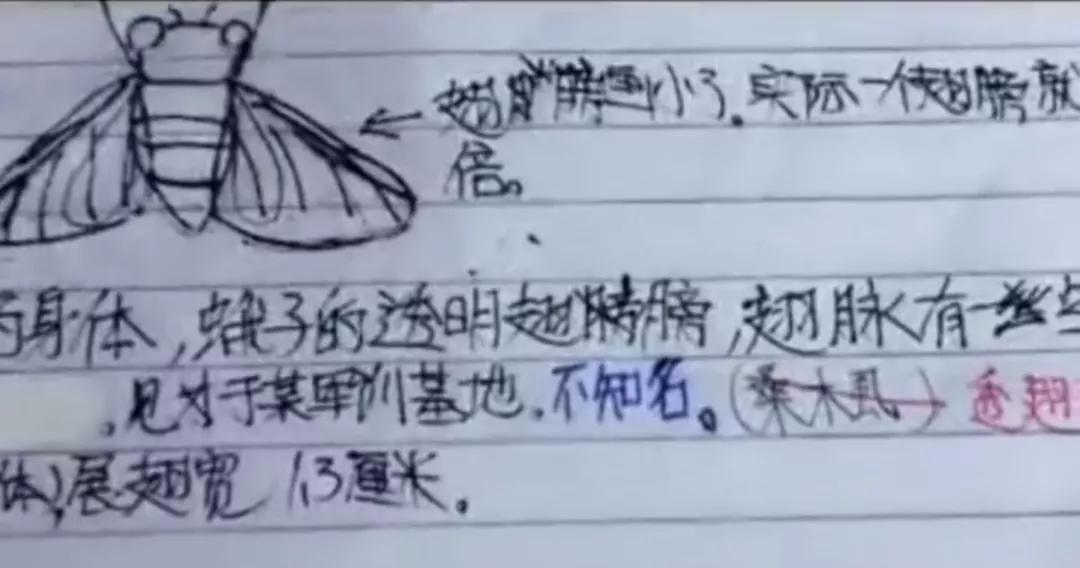 翅膀画小了。实际一个翅膀就
倍。
身体，蛾子的透明翅膀，翅脉有一些
，见对于某军训基地。不知名。（桑木虱）透翅
体）展翅宽 1.3厘米。